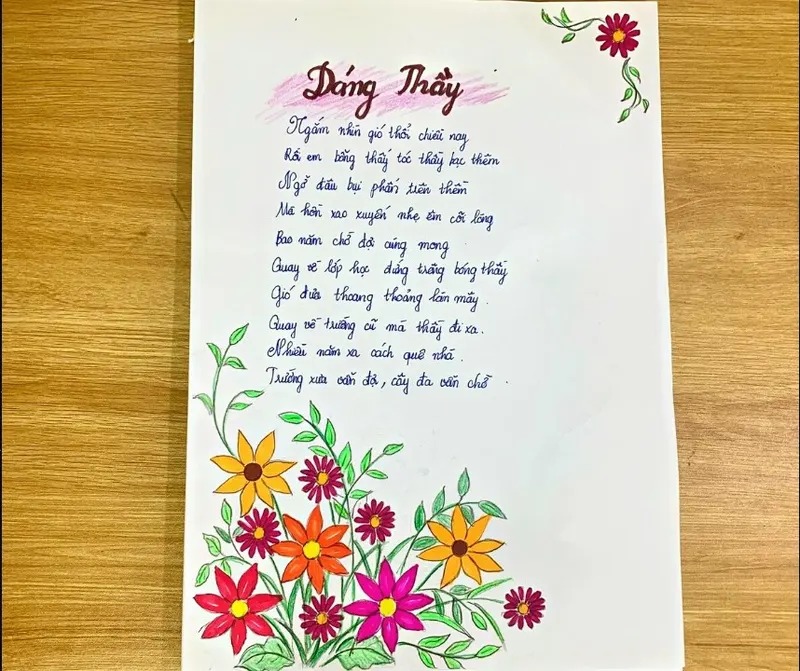 Dáng Thầy
Ngắm nhìn gió thổi chiều nay
Rồi em bỗng thấy tóc thầy bạc thêm
Ngỡ đâu bụi phấn trên thềm
Mà hồn xao xuyến nhẹ êm cõi lòng
Bao năm chờ đợi cùng mong
Quay về lớp học đứng trông bóng thầy
Gió đưa thoang thoảng làn mây.
Quay về trường cũ mà thầy đi xa.
Nhiều năm xa cách quê nhà.
Trường xưa vẫn đợi, cây đa vẫn chờ.